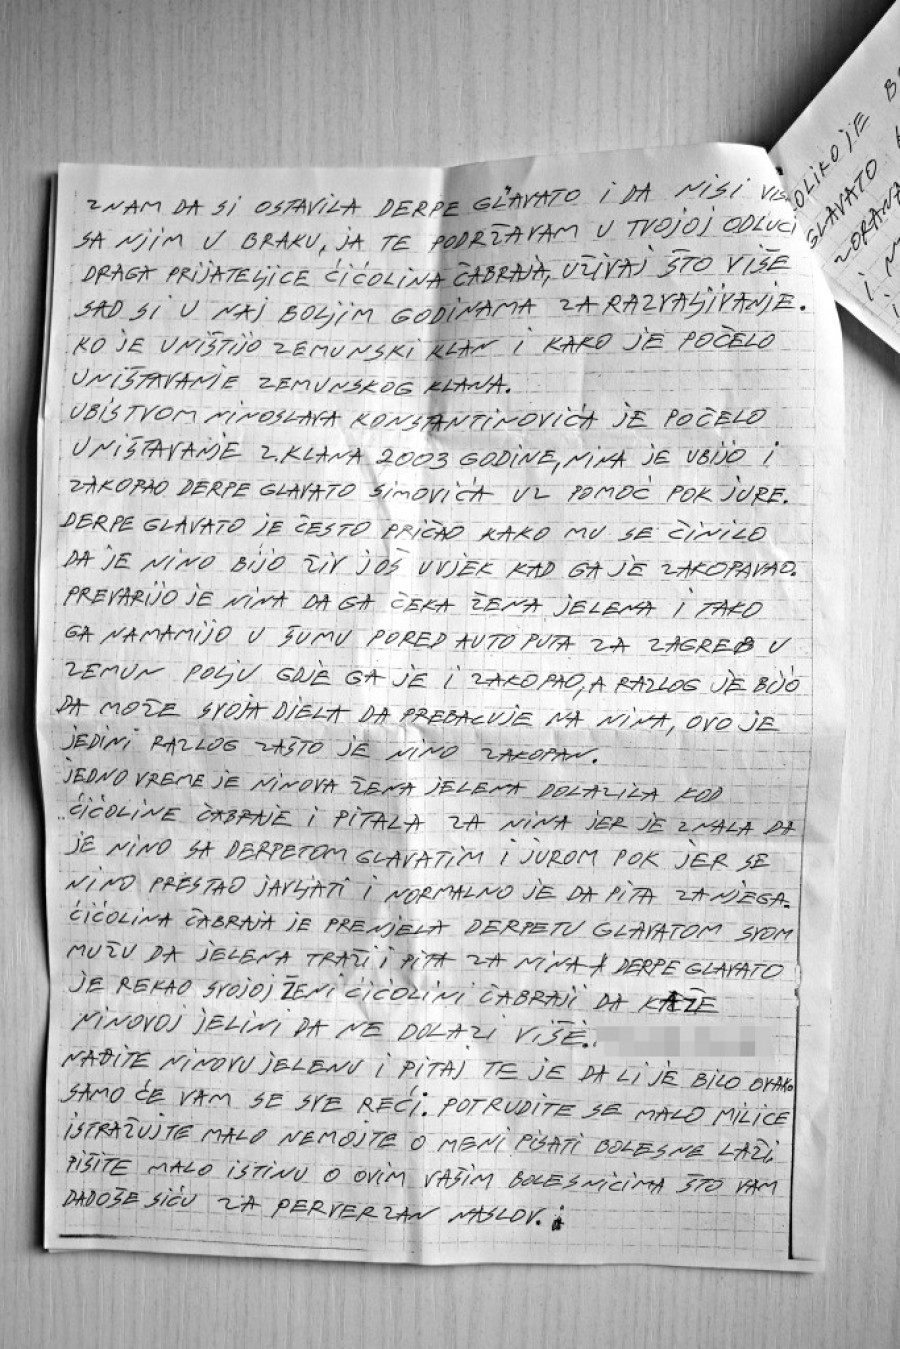 ZNAM DA SI OSTAVILA DERPE GLAVATO I DA NISI
SA NJIM U BRAKU, JA TE PODRŽAVAM U TVOJOJ ODLUCI
DRAGA PRIJATELJICE ĆIĆOLINA ČABRAJA, UŽIVAJ ŠTO VIŠE
SAD SI U NAJ BOLJIM GODINAMA ZA RAZVALJIVANJE.
KO JE UNIŠTIJO ZEMUNSKI KLAN I KAKO JE POČELO
UNIŠTAVANJE ZEMUNSKOG KLANA.
UBISTVOM NINOSLAVA KONSTANTINOVIĆA JE POČELO
UNIŠTAVANJE Z.KLANA 2003 GODINE, NINA JE UBIJO I
ZAKOPAO DERPE GLAVATO SIMOVIĆA UZ POMOĆ POK JURE.
DERPE GLAVATO JE ČESTO PRIČAO KAKO MU SE ČINILO
DA JE NINO BIJO ŽIV JOŠ UVJEK KAD GA JE ZAKOPAVAO.
PREVARIJO JE NINA DA GA ČEKA ŽENA JELENA I TAKO
GA NAMAMIJO U ŠUMU PORED AUTO PUTA ZA ZAGREB U
ZEMUN POLJU GDJE GA JE I ZAKOPAO, A RAZLOG JE BIJO
DA MOŽE SVOJA DJELA DA PREBACUJE NA NINA, OVO JE
JEDINI RAZLOG ZAŠTO JE NINO ZAKOPAN.
JEDNO VREME JE NINOVA ŽENA JELENA DOLAZILA KOD
ĆIĆOLINE ČABRAJE I PITALA ZA NINA JER JE ZNALA DA
JE NINO SA DERPETOM GLAVATIM I JUROM POK JER SE
NINO PRESTAO JAVLJATI I NORMALNO JE DA PITA ZA NJEGA.
ĆIĆOLINA ČABRAJA JE PRENJELA DERPETU GLAVATOM SVOM
MUŽU DA JELENA TRAŽI I PITA ZA NINA A DERPE GLAVATO
JE REKAO SVOJOJ ŽENI ĆIĆOLINI ČABRAJI DA KAŽE
NINOVOJ JELINI DA NE DOLAZI VIŠE.
NAĐITE NINOVU JELENU I PITAJ TE JE DA LI JE BILO OVAKO
SAMO ĆE VAM SE SVE REĆI. POTRUDITE SE MALO MILICE
ISTRAŽUJTE MALO NEMOJTE O MENI PISATI BOLESNE LAŽI
PIŠITE MALO ISTINU O OVIM VAŠIM BOLESNICIMA ŠTO VAM
DADOŠE SIĆU ZA PERVERZAN NASLOV.
OLIKO JE
GLAVATO